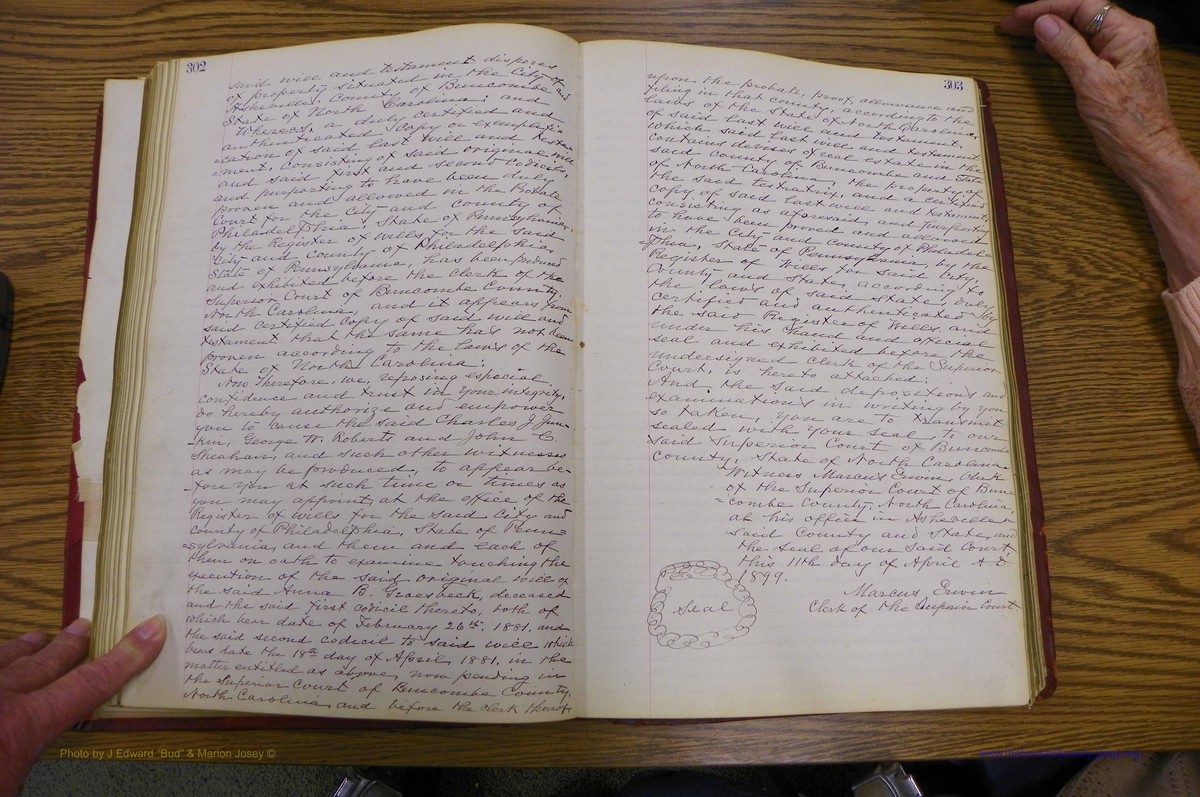 302
said will and testament disposes
of property situated in the City of
Asheville, County of Buncombe and
State of North Carolina; and
Whereas, a duly certified and
authenticated copy or exemplifi-
=cation of said last will and testa-
=ment, consisting of said original will
and said first and second codicils,
and purporting to have been duly
proven and allowed in the Probate
Court for the City and County of
Philadelphia, State of Pennsylvania,
by the Register of Wills for the said
City and County of Philadelphia,
State of Pennsylvania, has been produced
and exhibited before the Clerk of the
Superior Court of Buncombe County,
North Carolina, and it appears from
said certified copy of said will and
testament that the same has not been
proven according to the laws of the
State of North Carolina:
Now Therefore, we, reposing especial
confidence and trust in your integrity,
do hereby authorize and empower
you to cause the said Charles J. Jun-
=kin, George W. Roberts and John C.
Sheahan, and such other witnesses
as may be produced, to appear be-
=fore you at such time or times as
you may appoint, at the office of the
Register of Wills for the said City and
County of Philadelphia, State of Penn=
=sylvania, and them and each of
them on oath to examine touching the
execution of the said original will of
the said Anna B. Groesbeck, deceased
and the said first codicil thereto, both of
which bear date of February 26th, 1881, and
the said second codicil to said will which
bears date the 18th day of April, 1881, in the
matter entitled as above, now pending in
the Superior Court of Buncombe County,
North Carolina, and before the clerk thereof,
303
upon the probate, proof, allowance and
filing in that county, according to the
laws of the State of North Carolina,
of said last will and testament,
which said last will and testament
contains devises of real estate in the
said County of Buncombe and State
of North Carolina, the property of
the said testatrix, and a certified
copy of said last will and testament,
consisting as aforesaid, and purporting
to have been proved and allowed
in the City and County of Philadel-
=phia, State of Pennsylvania, by the
Register of Wills for said City,
County and State, according to
the laws of said State, duly
certified and authenticated by
the said Register of Wills, and
under his hand and official
seal and exhibited before the
undersigned clerk of the Superior
Court, is hereto attached.
And the said depositions and
examinations in writing by you
so taken, you are to transmit
sealed with your seal, to our
said Superior Court of Buncombe
County, State of North Carolina.
Witness Marcus Erwin, Clerk
of the Superior Court of Bun-
=combe County, North Carolina,
at his office in Asheville in
said County and State, and
the seal of our said Court
this 11th day of April A.D.
1899.
Marcus Erwin
Clerk of the Superior Court
Seal
Photo by J Edward "Bud" & Marion Josey ©